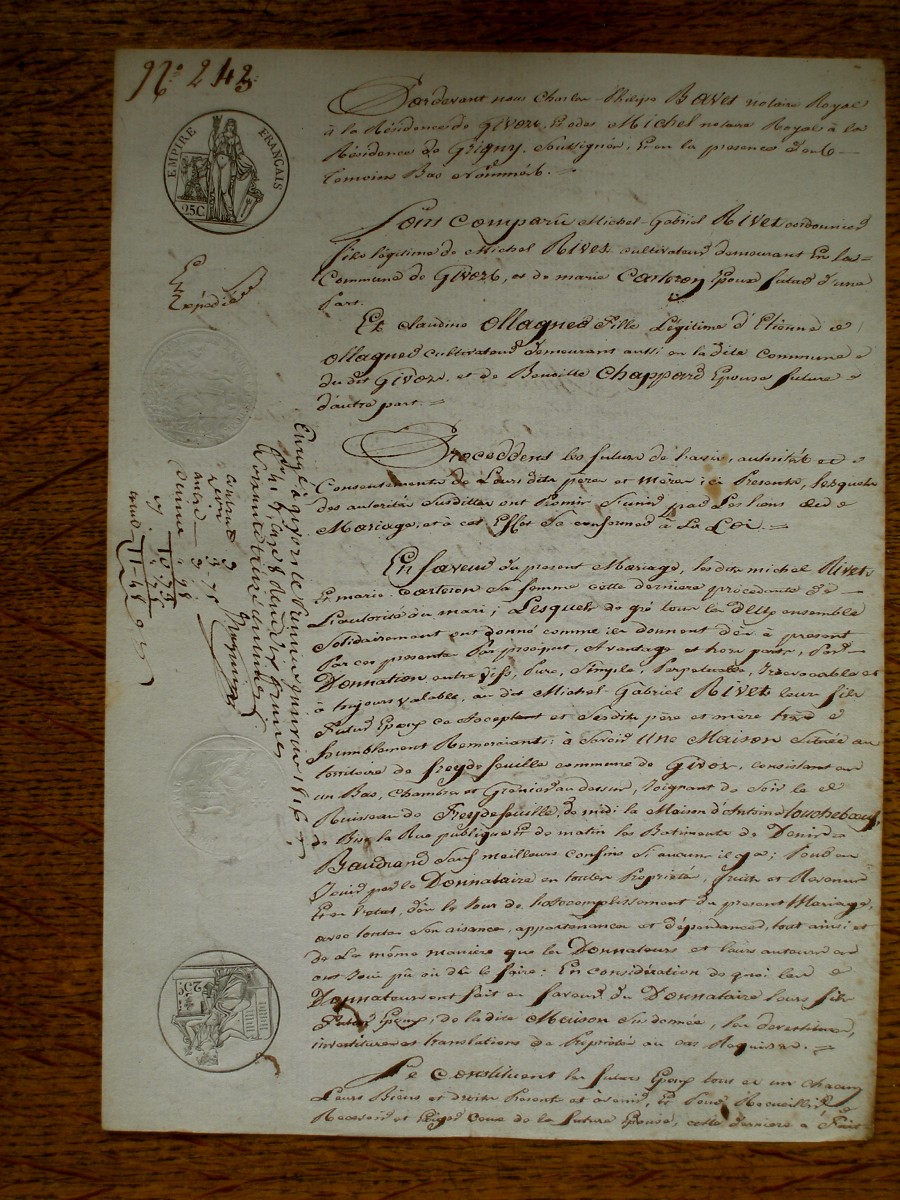 N.º 243.
EMPIRE FRANÇAIS
25C
Expédié
Pardevant nous Charles-Philipe Bavet notaire Royal
à la Résidence de Givors, Et odes Michel notaire Royal à la
Résidence de Grigny, Soussignés, Et en la presence des
temoins Bas nommés.
Sont Comparu Michel-Gabriel Rivet cordonnier
fils légitime de Michel Rivet cultivateur demeurant En la
Commune de Givors, et de marie Carteron Epoux futur d'une
Part.
Et Claudine Ollagnet Fille Légitime d'Etienne
Ollagnet cultivateur demeurant aussi en la dite Commune
du dit Givors, et de Benoitte Chappard Epouse future
d'autre part.
Procèddent les futurs de l'avis, autorité et
Consentement de Leurs dits peres et meres ici Présents, lesquels
des autorités Susdittes ont Promis S'unir par Les liens du
Mariage, et à cet Effet Se conformer à La Loi.
En faveur du present Mariage, les dits michel Rivet
Et marie Carteron Sa femme cette derniere procédante de
L'autorité du mari; Lesquels de gré tous les deux ensemble
Solidairement ont donné comme ils donnent dès à present
Par ces presentes Par préciput, Avantage et hors part, Par
Donnation entre vifs, Pure, Simple, Perpetuelle, Irrevocable et
à toujours valable, au dit Michel-Gabriel Rivet leur fils
Futur Epoux ce Acceptant et Ses dits père et mère très
humblement Remerciant; à Savoir Une Maison Située au
territoire de freydefeuille commune de Givors, consistant en
un Bas, Chambre et Grenier au dessus, Joignant de Soir le
Ruisseau de Freydefeuille, de midi la Maison d'Antoine
de Bise la Rue publique Et de matin les Batiments de Denis
Baudrand Sauf meilleurs confins Si aucuns il y a; Pour en
Jouir par le Donnataire en toute Propriété, fruits et Revenus
Et en l'état, dès le Jour de l'accomplissement du present Mariage,
avec toutes Ses aisances, appartenances et dépendances, tout ainsi et
de La même maniere que les Donnateurs et leurs auteurs en
ont Joui pû ou dû le faire: En considération de quoi les
Donnateurs ont fait en faveur du Donnataire leur fils
Futur Epoux, de la dite Maison Sus donnée, les devestitures,
investitures et translations de Propriété au cas Requises.
Se Constituent les futurs Epoux tous et un chacun
Leurs Biens et droits Présents et à venir, Et Pour Recueillir,
Recevoir et Exiger Ceux de la future Epouse, cette derniere à Fait